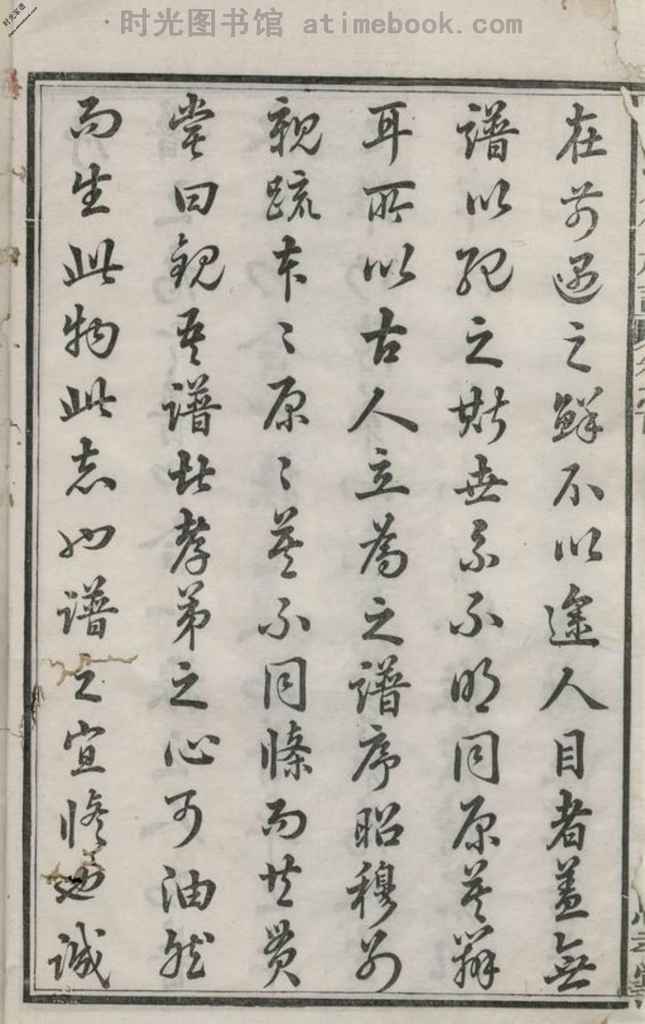 时光图书馆 atimebook.com
在前遇之鲜不以途人目者盖无
谱以纪之斯世系不明同原莫辨
耳所以古人立为之谱序昭穆别
亲疏本〻原〻莫不同条而共贯
尝曰观吾谱者孝弟之心可油然
而生此物此志也谱之宜修也诚